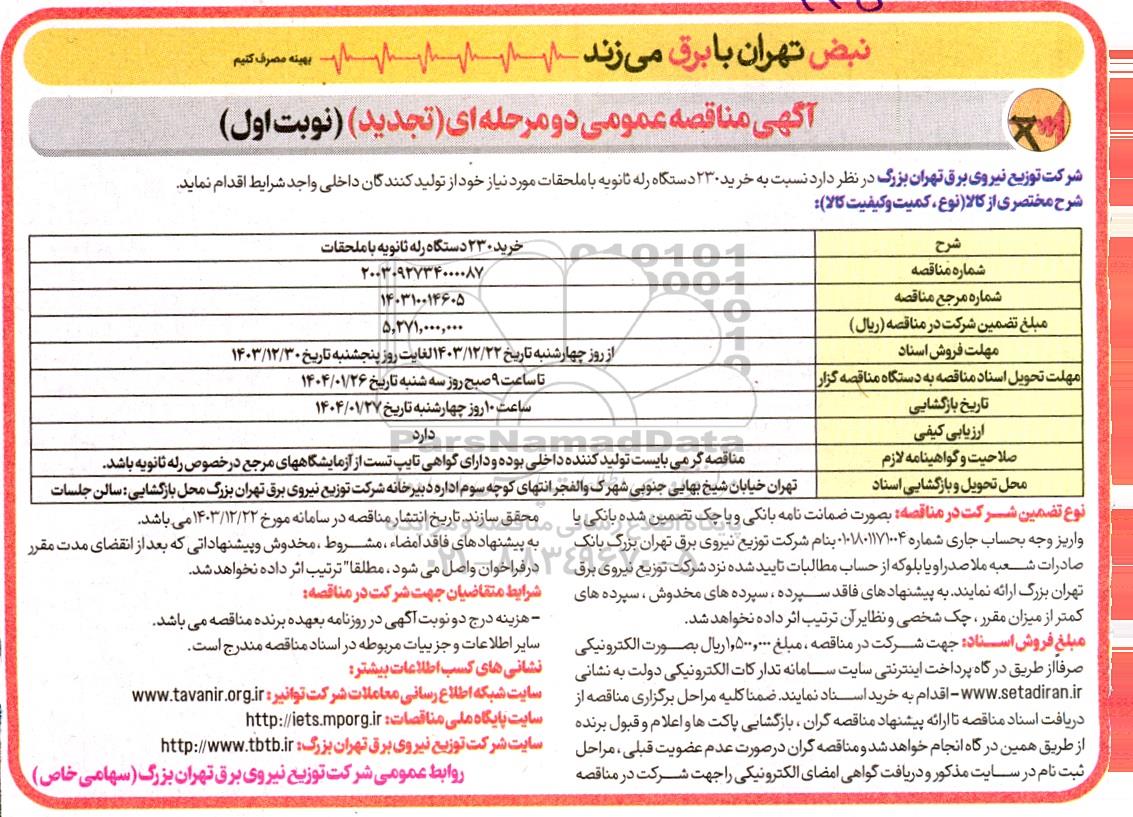 نبض تهران با برق می‌زند بهینه مصرف کنیم
آگهی مناقصه عمومی دو مرحله ای (تجدید) (نوبت اول)
شرکت توزیع نیروی برق تهران بزرگ در نظر دارد نسبت به خرید ۲۳۰ دستگاه رله ثانویه با ملحقات مورد نیاز خود از تولید کنندگان داخلی واجد شرایط اقدام نماید.
شرح مختصری از کالا (نوع ، کمیت و کیفیت کالا):
شرح خرید ۲۳۰ دستگاه رله ثانویه با ملحقات
شماره مناقصه ۲۰۰۳۰۹۲۷۳۴۰۰۰۰۸۷
شماره مرجع مناقصه ۱۴۰۳۱۰۰۱۴۶۰۵
مبلغ تضمین شرکت در مناقصه (ریال) ۵,۲۷۱,۰۰۰,۰۰۰
مهلت فروش اسناد از روز چهارشنبه تاریخ ۱۴۰۳/۱۲/۲۲ لغایت روز پنجشنبه تاریخ ۱۴۰۳/۱۲/۳۰
مهلت تحویل اسناد مناقصه به دستگاه مناقصه گزار تا ساعت ۹ صبح روز سه شنبه تاریخ ۱۴۰۴/۰۱/۲۶
تاریخ بازگشایی ساعت ۱۰ روز چهارشنبه تاریخ ۱۴۰۴/۰۱/۲۷
ارزیابی کیفی دارد
صلاحیت و گواهینامه لازم مناقصه گر می بایست تولید کننده داخلی بوده و دارای گواهی تایپ تست از آزمایشگاههای مرجع در خصوص رله ثانویه باشد.
محل تحویل و بازگشایی اسناد تهران خیابان شیخ بهایی جنوبی شهرک والفجر انتهای کوچه سوم اداره دبیرخانه شرکت توزیع نیروی برق تهران بزرگ محل بازگشایی : سالن جلسات
نوع تضمین شرکت در مناقصه: بصورت ضمانت نامه بانکی و یا چک تضمین شده بانکی یا
واریز وجه بحساب جاری شماره ۰۱۰۱۸۰۱۱۷۱۰۰۴ بنام شرکت توزیع نیروی برق تهران بزرگ بانک
صادرات شعبه ملاصدرا و یا بلوکه از حساب مطالبات تایید شده نزد شرکت توزیع نیروی برق
تهران بزرگ ارائه نمایند. به پیشنهاد های فاقد سپرده ، سپرده های مخدوش ، سپرده های
کمتر از میزان مقرر ، چک شخصی و نظایر آن ترتیب اثر داده نخواهد شد.
مبلغ فروش اسناد: جهت شرکت در مناقصه ، مبلغ ۱,۵۰۰,۰۰۰ ریال بصورت الکترونیکی
صرفاً از طریق درگاه پرداخت اینترنتی سایت سامانه تدارکات الکترونیکی دولت به نشانی
www.setadiran.ir – اقدام به خرید اسناد نمایند. ضمنا کلیه مراحل برگزاری مناقصه از
دریافت اسناد مناقصه تا ارائه پیشنهاد مناقصه گران ، بازگشایی پاکت ها و اعلام و قبول برنده
از طریق همین درگاه انجام خواهد شد و مناقصه گران در صورت عدم عضویت قبلی ، مراحل
ثبت نام در سایت مذکور و دریافت گواهی امضای الکترونیکی را جهت شرکت در مناقصه
محقق سازند. تاریخ انتشار مناقصه در سامانه مورخ ۱۴۰۳/۱۲/۲۲ می باشد.
به پیشنهاد های فاقد امضاء ، مشروط ، مخدوش و پیشنهاداتی که بعد از انقضای مدت مقرر
در فراخوان واصل می شود ، مطلقا" ترتیب اثر داده نخواهد شد.
شرایط متقاضیان جهت شرکت در مناقصه:
- هزینه درج دو نوبت آگهی در روزنامه بعهده برنده مناقصه می باشد.
سایر اطلاعات و جزییات مربوطه در اسناد مناقصه مندرج است.
نشانی های کسب اطلاعات بیشتر:
سایت شبکه اطلاع رسانی معاملات شرکت توانیر: www.tavanir.org.ir
سایت پایگاه ملی مناقصات: http://iets.mporg.ir
سایت شرکت توزیع نیروی برق تهران بزرگ: http://www.tbtb.ir
روابط عمومی شرکت توزیع نیروی برق تهران بزرگ (سهامی خاص)
ParsNamadData
پایگاه اطلاع رسانی مناقصه و مزایده
۰۲۱-۸۸۳۴۹۶۷۰-۵